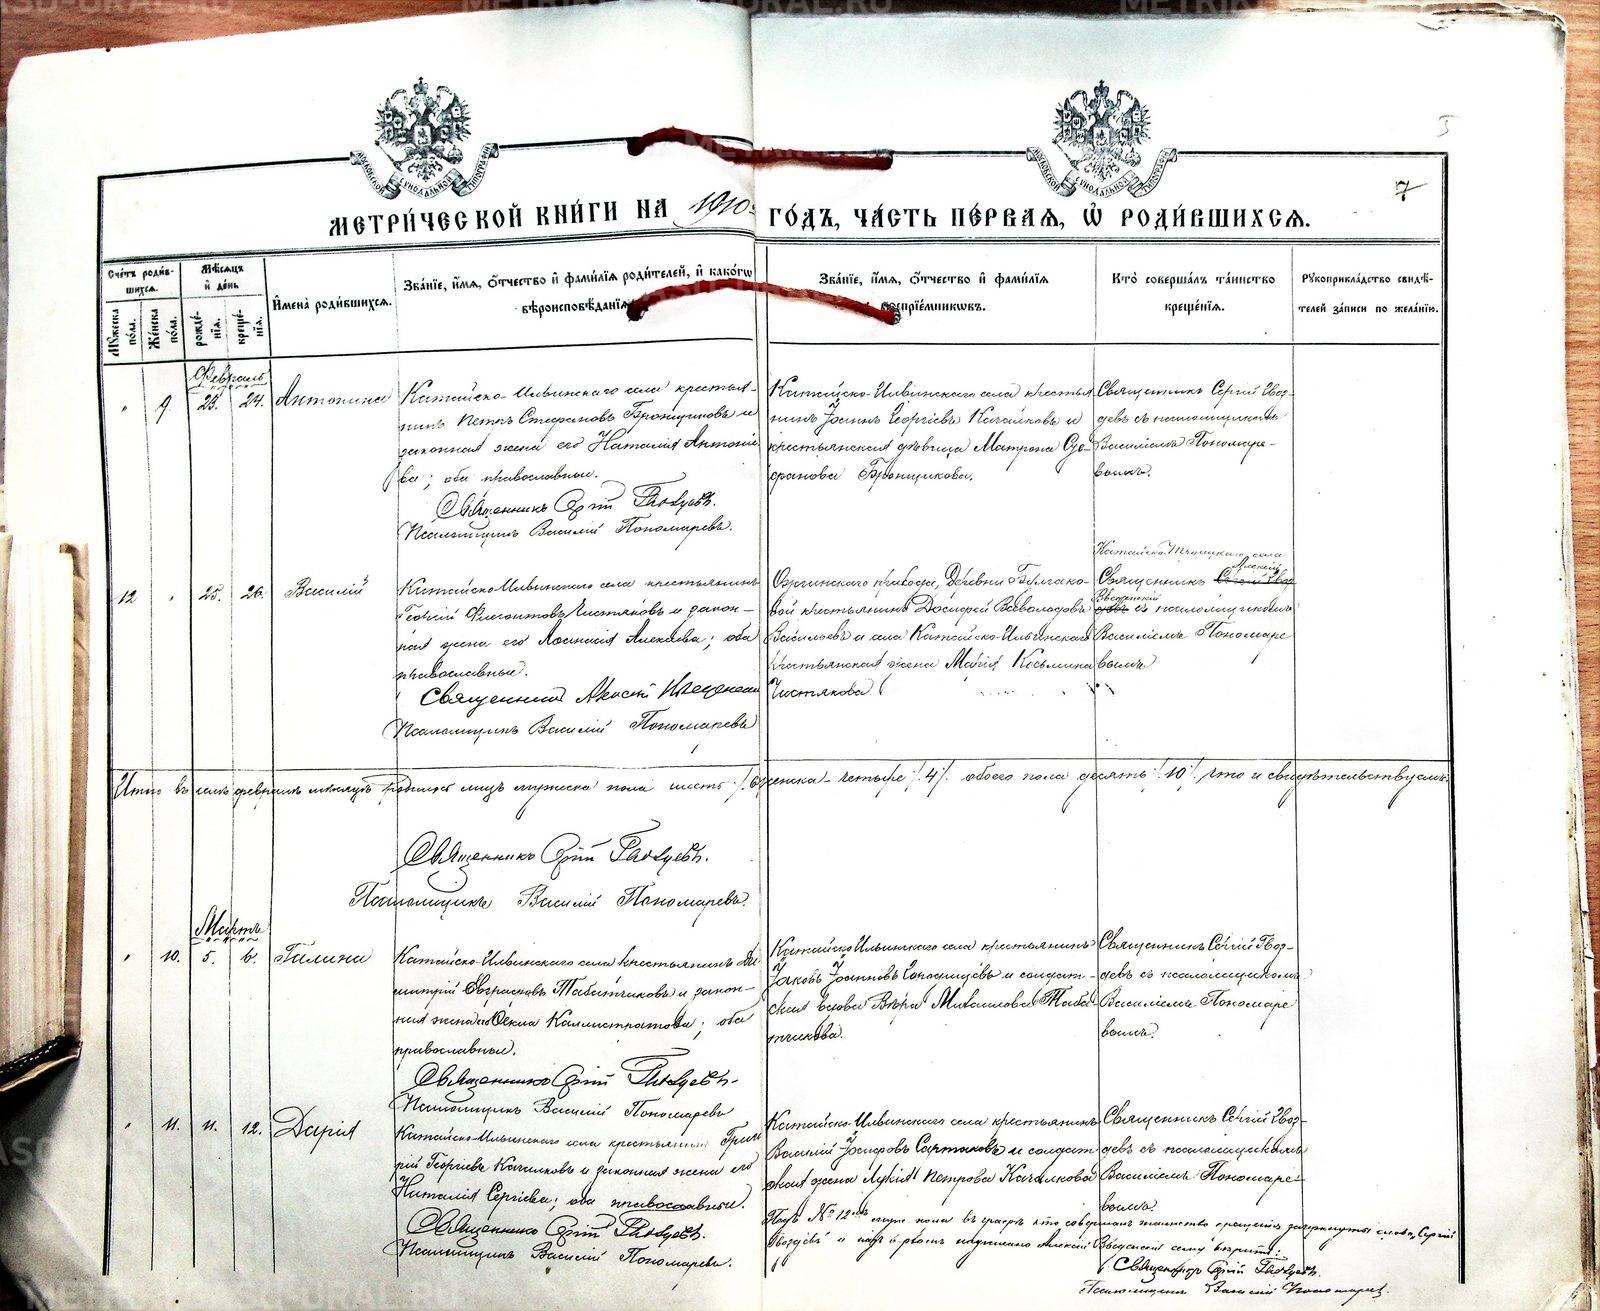 МЕТРИЧЕСКОЙ КНИГИ НА 1910 ГОДЪ, ЧАСТЬ ПЕРВАЯ, Ѿ РОДИВШИХСЯ.
7
Счетъ родив-
шихся.
Мужеска пола.
Женска пола.
Мѣсяцъ
и день
рожде-
нія.
креще-
нія.
Имена родившихся.
Званіе, имя, отчество и фамилія родителей, и какогѡ
вѣроисповѣданія
Званіе, имя, отчество и фамилія
воспріемникѡвъ.
Кто совершалъ таинство
крещенія.
Рукоприкладство свидѣ-
телей записи по желанію.
Февраль
9. 23. 24. Антонина
Катайско-Ильинскаго села крестья-
нинъ Петръ Стефановъ Бронщиковъ и
законная жена его Наталія Антоніе
ва; оба православные.
Священникъ Сергій Гвоздевъ.
Псаломщикъ Василій Пономаревъ.
Катайско-Ильинскаго села крестья
нинъ Іоаннъ Георгіевъ Качалковъ и
крестьянская дѣвица Матрона
Бронщикова.
Священникъ Сергій Гвоз-
девъ съ псаломщикомъ
Василіемъ Пономаре-
вымъ.
12 25. 26. Василій
Катайско-Ильинскаго села крестьянинъ
Георгій Чистяковъ и закон-
ная жена его Алексіева; оба
православные.
Священникъ Алексій
Псаломщикъ Василій Пономаревъ
прихода, деревни
крестьянинъ Досифей
Васильевъ и села Катайско-Ильинскаго
крестьянская жена Марія Косьмина
Чистякова
Катайско-Троицкаго села
Священникъ Алексій
съ псаломщикомъ
Василіемъ Пономаре
вымъ
Итого въ семъ февралѣ мѣсяцѣ родилось лицъ мужеска пола шесть /6/ женска - четыре /4/ обоего пола десять /10/, что и свидѣтельствуемъ
Священникъ Сергій Гвоздевъ.
Псаломщикъ Василій Пономаревъ.
Мартъ
10. 5. 6. Галина
Катайско-Ильинскаго села крестьянинъ Ди
митрій Табатчиковъ и закон-
ная жена его Каллистратова; оба
православные.
Священникъ Сергій Гвоздевъ.
Псаломщикъ Василій Пономаревъ
Катайско-Ильинскаго села крестьянинъ
Іаковъ Іоанновъ и солдат-
ская вдова Вѣра Михаилова Таба
тчикова.
Священникъ Сергій Гвоз-
девъ съ псаломщикомъ
Василіемъ Пономаре
вымъ.
11. 11. 12. Дарія
Катайско-Ильинскаго села крестьянинъ Григо
рій Георгіевъ Качалковъ и законная жена его
Наталія Сергіева; оба православные.
Священникъ Сергій Гвоздевъ.
Псаломщикъ Василій Пономаревъ.
Катайско-Ильинскаго села крестьянинъ
Василій Сартаковъ и солдат-
ская жена Лукія Петрова Качалкова
Священникъ Сергій Гвоз-
девъ съ псаломщикомъ
Василіемъ Пономаре-
вымъ.
Подъ № 12 муж. пола въ графѣ кто совершалъ таинство крещенія зачеркнуты слова, Сергій
Гвоздевъ и надписано Алексій сему вѣрить:
Священникъ Сергій Гвоздевъ.
Псаломщикъ Василій Пономаревъ.